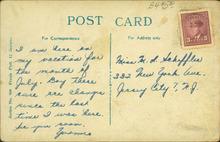 POST CARD
For Correspondence
For Address only
I am here on
my vacation for
the month of
July. Boy there
sure are changes
since the last
time I was here.
be you soon
Miss M. A. Scheffler
332 New York Ave.
Jersey City 7, N.J.